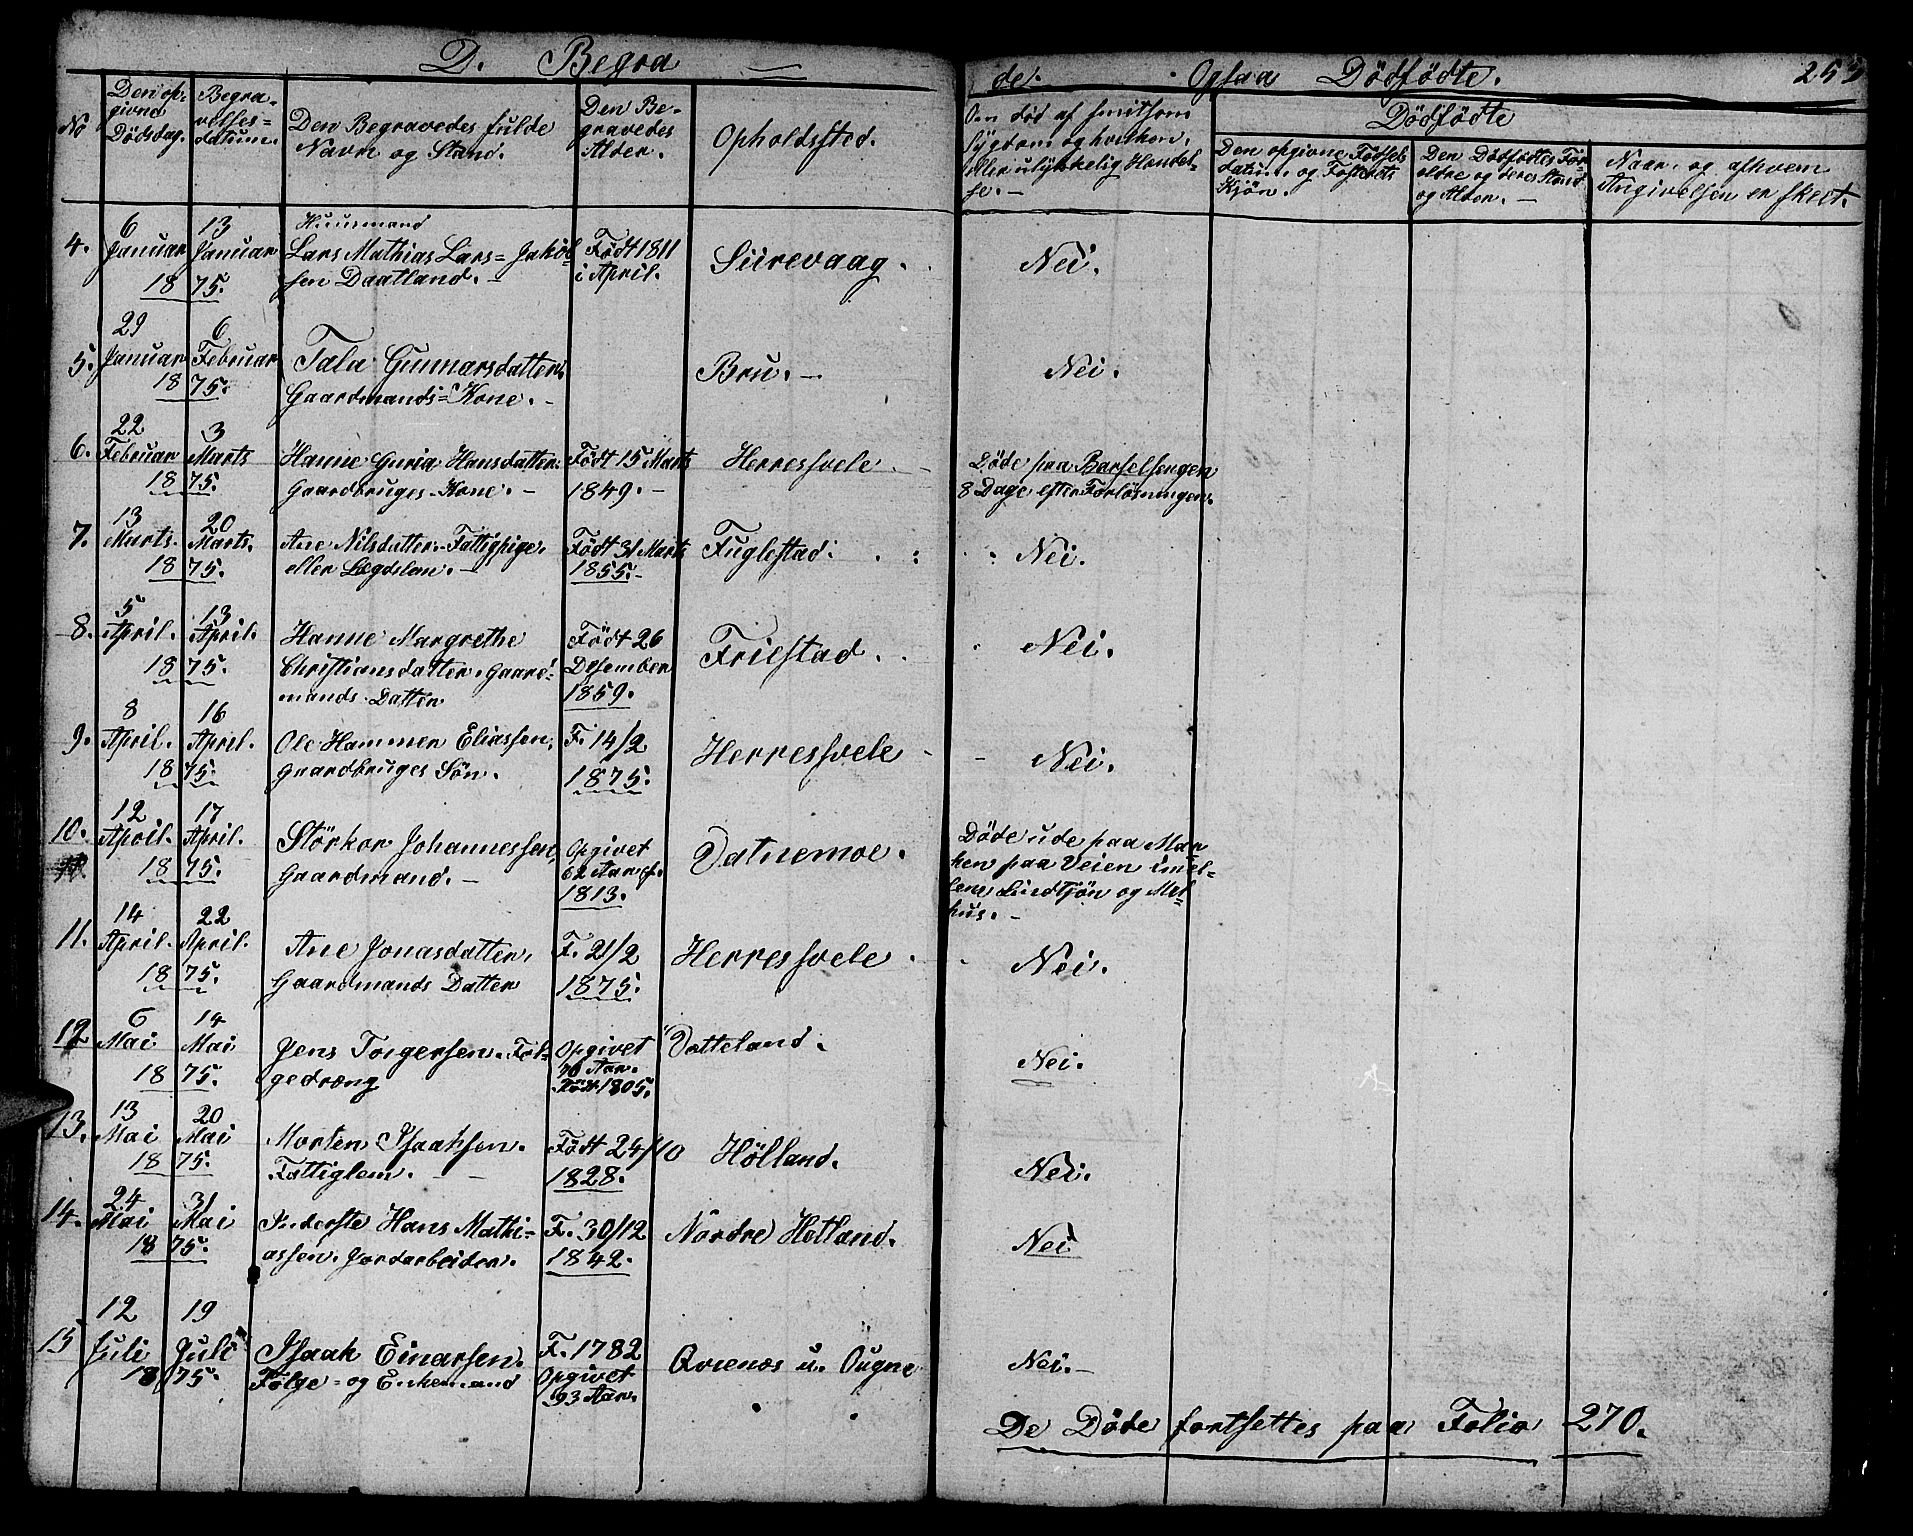 D. Begra
de. Ogsaa Dödfödte. 253
No
Den op-
givne
Dödsdag.
Begra-
velses-
datum.
Den Begravedes fulde
Navn og Stand.
Den Be-
gravedes
Alder.
Opholdssted.
Om död af smitsom
Sygdom og hvilken,
eller ulykkelig Hændel-
se. -
Dödfödte
Den opgivne Födsels
datum og Fosterets
Kjön.
Den Dödfödtes For-
ældre og deres Stand
og Alder. -
Naar og afhvem
Angivelsen er skeet.
4. 6 Januar 13 Januar 1875.
Huusmand
Lars Mathias Lars= Jakob
sen Daatland. -
Födt 1811
i April.
Siirevaag.
Nei.
5. 29 Januar 6 Februar 1875.
Tala Gunnarsdatter.
Gaardmands=Kone. -
Bru. -
Nei.
6. 22 Februar 3 Marts 1875.
Hanne Guria Hansdatter.
Gaardbruges-Kone. -
Födt 15 Marts
1849. -
Herresvele
Döde paa Barselsengen
8 Dage efter Forlösningen.
7. 13 Marts 20 Marts. 1875.
Ane Nilsdatter. Fattigpige.
eller Lægdslem. -
Födt 31 Marts
1855. -
Fuglestad.
Nei.
8. 5 April. 13 April. 1875.
Hanne Margrethe
Christiansdatter. Gaard-
mands-Datter
Födt 26
Desember
1859.
Friestad.
Nei.
9. 8 April. 16 April. 1875.
Ole Hammer Eliassen.
Gaardbruges Sön.
F. 14/2
1875.
Herresvele
Nei.
10. 12 April. 17 April. 1875.
Störkor Johannessen,
Gaardmand. -
Opgivet
62 Aar f.
1813.
Datnemoe.
Döde ude paa Mar
ken paa Veien imel-
lem Lindtjön og Mel-
hus. -
11. 14 April. 22 April. 1875.
Ane Jonasdatter.
Gaardmands Datter
F. 21/2
1875.
Herresvele
Nei.
12 6 Mai 14 Mai 1875.
Jens Torgersen. Föl-
gedræng
Opgivet
70 Aar.
Födt 1805.
Datteland.
Nei.
13. 13 Mai 20 Mai 1875.
Morten Isaaksen.
Fattiglem.
Födt 24/10
1828.
Hölland.
Nei.
14. 24 Mai 31 Mai 1875.
Inderste Hans Mathi-
assen. Jordarbeider.
F. 30/12
1842.
Nordre Hetland.
Nei
15 12 Juli 19 Juli 1875.
Isaak Einarsen.
Fölge- og Enkemand
F. 1782
Opgivet
93 Aar.
Qvienæs u. Ougne
Nei. -
De Döde fortsettes paa Folio 270.